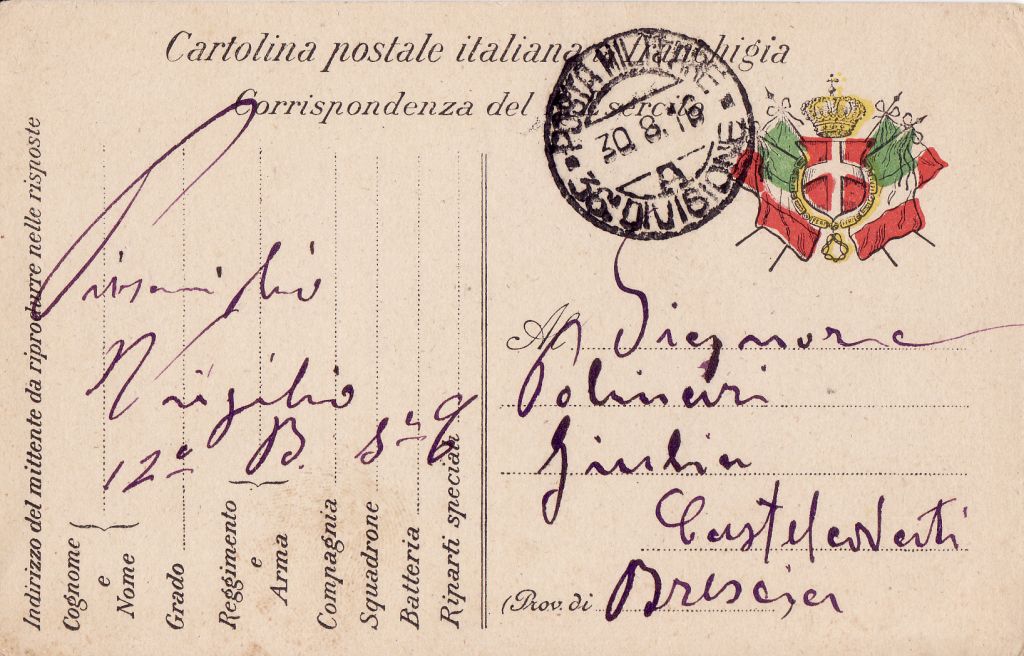 Cartolina postale italiana in franchigia
Corrispondenza del R. esercito
POSTA MILITARE
30.8.16
A
36ª DIVISIONE
Indirizzo del mittente da riprodurre nelle risposte
Cognome
e
Nome
Grado
Reggimento
e
Arma
Compagnia
Squadrone
Batteria
Riparti speciali
Virgilio
12ª B. Sª
Al Signora
Polinari
Giulia
(Prov. di Brescia